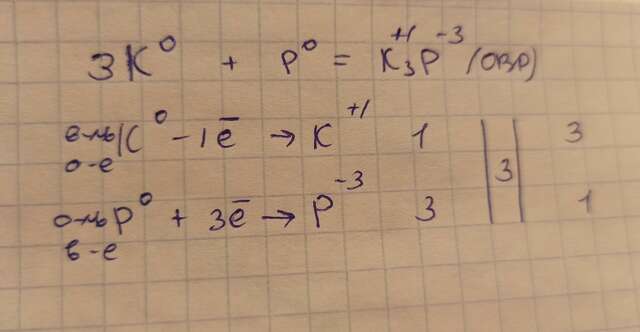 3K⁰ + P⁰ = K₃⁺¹P⁻³ (ОВР)
в-ль K⁰ - 1ē → K⁺¹ 1 3
о-е 3
о-ль P⁰ + 3ē → P⁻³ 3 1
в-е